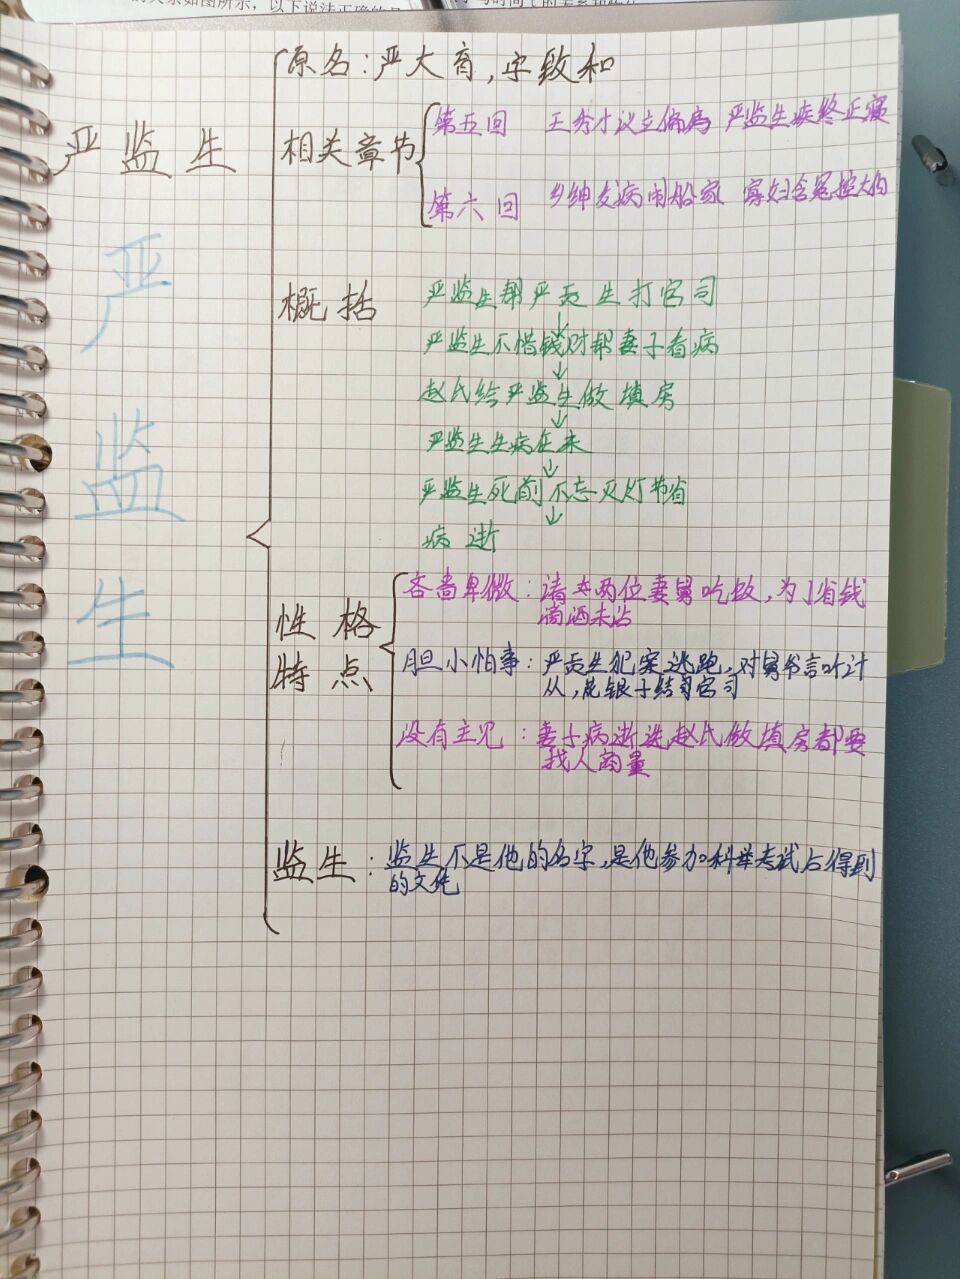 原名：严大育，字致和
严监生
相关章节
第五回 王秀才议立偏房 严监生疾终正寝
第六回 乡绅发病闹船家 寡妇含冤控大伯
严
监
生
概括
严监生帮严贡生打官司
↓
严监生不惜钱财帮妻子看病
↓
赵氏给严监生做填房
↓
严监生生病在床
↓
严监生死前不忘灭灯节省
↓
病逝
性格
特点
吝啬卑微：请两位妻舅吃饭，为了省钱
滴酒未沾
胆小怕事：严贡生犯案逃跑，对舅爷言听计
从，花银子结了官司
没有主见：妻子病逝选赵氏做填房都要
找人商量
监生：监生不是他的名字，是他参加科举考试后得到
的文凭